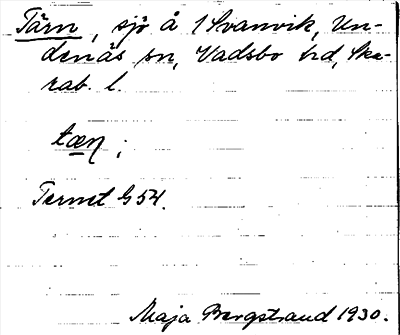 Tärn, sjö å 1 Svanvik, Un-
denäs sn, Vadsbo hd, Ska-
rab. l.
tæn;
Ternet G 54.
Maja Bergstrand 1930.